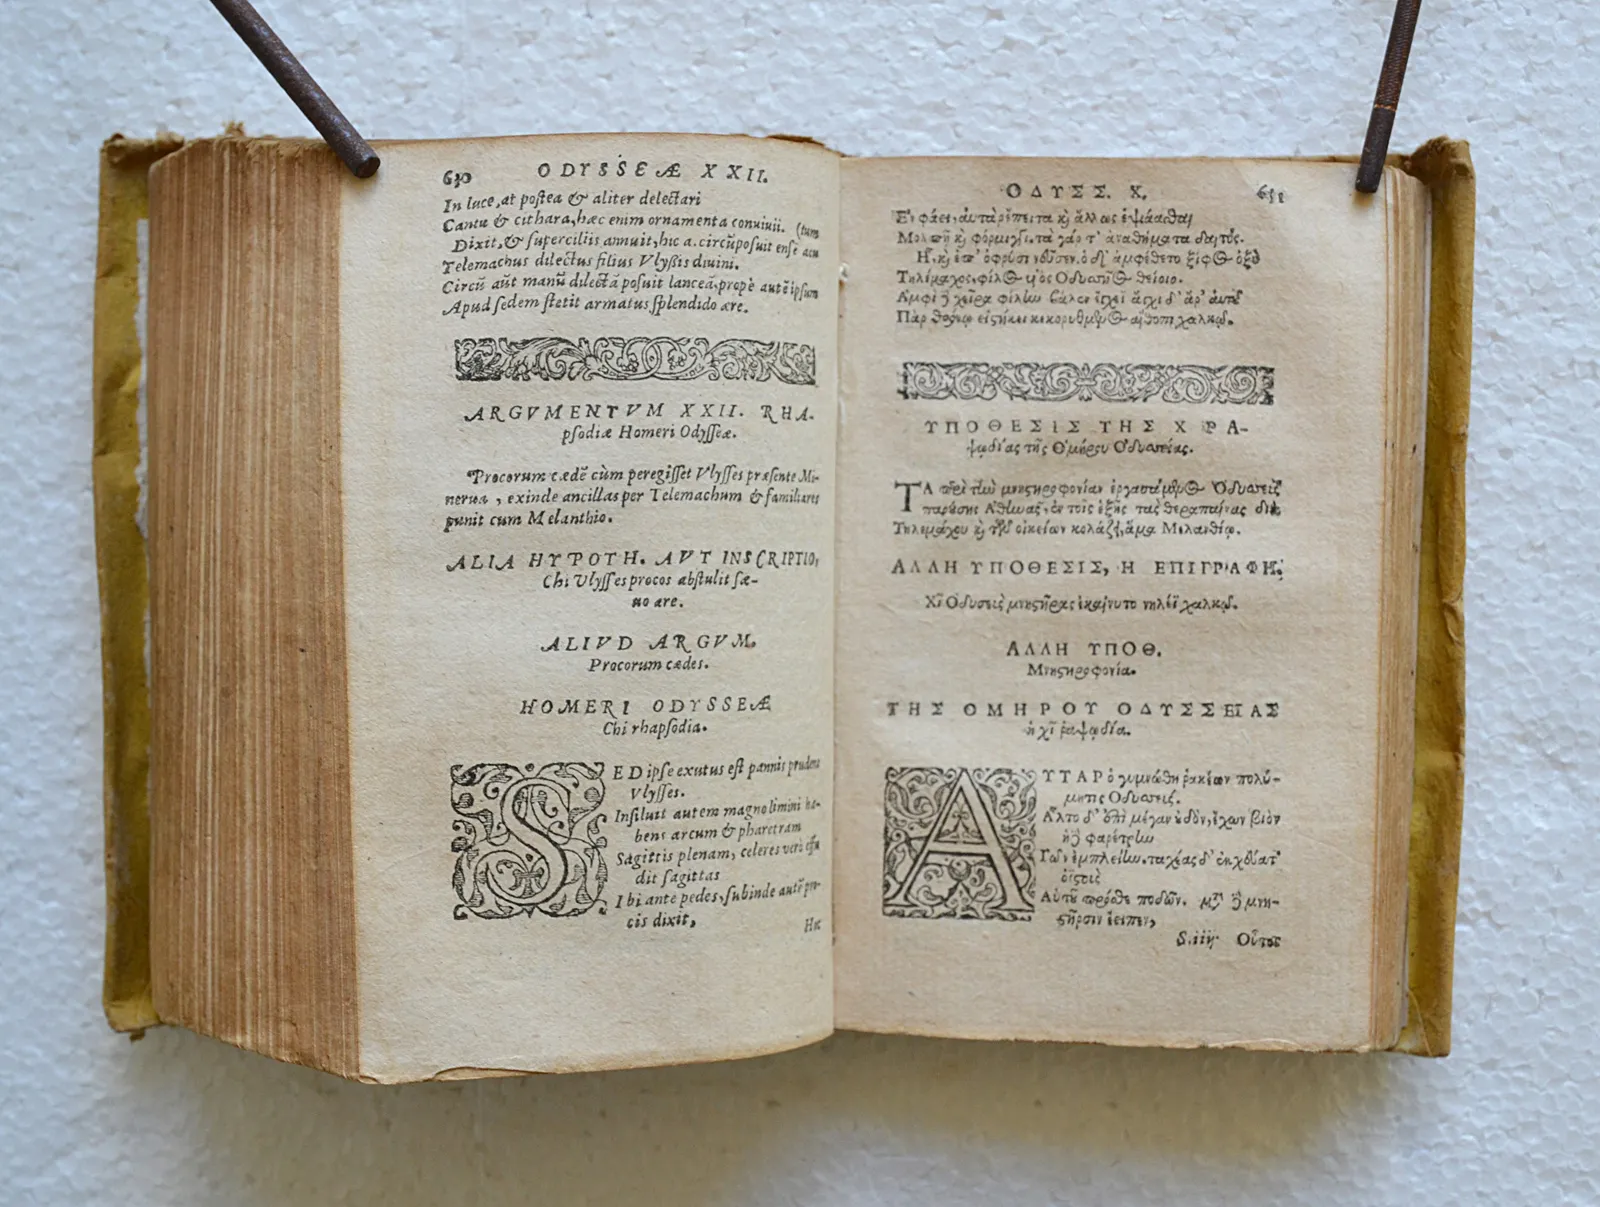 630 ODYSSEÆ XXII.
In luce, at postea & aliter delectari
Cantu & cithara, hæc enim ornamenta conuiuii. (tum
Dixit, & superciliis annuit, hic a. circũposuit ensẽ acu
Telemachus dilectus filius Vlyßis diuini.
Circũ aũt manũ dilectã posuit lanceã, propè autẽ ipsum
Apud sedem stetit armatus splendido ære.
ARGVMENTVM XXII. RHA-
psodiæ Homeri Odysseæ.
Procorum cædẽ cùm peregisset Vlysses præsente Mi-
nerua, exinde ancillas per Telemachum & familiares
punit cum Melanthio.
ALIA HYPOTH. AVT INSCRIPTIO,
Chi Vlysses procos abstulit sæ-
uo ære.
ALIVD ARGVM.
Procorum cædes.
HOMERI ODYSSEÆ
Chi rhapsodia.
SED ipse exutus est pannis prudens
Vlysses.
Insiluit autem magno limini ha-
bens arcum & pharetram
Sagittis plenam, celeres verò effu
dit sagittas
Ibi ante pedes, subinde autẽ pro-
cis dixit,
Hic
ΟΔΥΣΣ. Χ. 631
Ἐν φάει, αὐτὰρ ἔπειτα κὶ ἄλλως ἑψιάασθαι
Μολπῇ κὶ φόρμιγγι, τὰ γάρ τ' ἀναθήματα δαιτός.
Η, κὶ ἐπ' ὀφρύσι νεῦσεν. ὁ δ' ἀμφέθετο ξίφος ὀξὺ
Τηλέμαχος, φίλος υἱὸς Ὀδυσσῆος θείοιο.
Ἀμφὶ δὲ χεῖρα φίλην βάλεν ἔγχεϊ ἄγχι δ' ἄρ' αὐτοῦ
Πὰρ θρόνον εἱστήκει κεκορυθμένος αἴθοπι χαλκῷ.
ΥΠΟΘΕΣΙΣ ΤΗΣ Χ ΡΑ-
ψωδίας τῆς Ὁμήρου Ὀδυσσείας.
ΤΑ περὶ τὴν μνηστηροφονίαν ἐργασάμενος Ὀδυσσεὺς
παρούσης Ἀθηνᾶς, ἐν τοῖς ἑξῆς τὰς θεραπαίνας διὰ
Τηλεμάχου κὶ τῶν οἰκείων κολάζει, ἅμα Μελανθίῳ.
ΑΛΛΗ ΥΠΟΘΕΣΙΣ, Η ΕΠΙΓΡΑΦΗ.
Χῖ Ὀδυσεὺς μνηστῆρας ἐκαίνυτο νηλέϊ χαλκῷ.
ΑΛΛΗ ΥΠΟΘ.
Μνηστηροφονία.
ΤΗΣ ΟΜΗΡΟΥ ΟΔΥΣΣΕΙΑΣ
ἡ χῖ ῥαψωδία.
ΑΥΤΑΡ ὁ γυμνώθη ῥακέων πολύ-
μητις Ὀδυσσεύς.
Ἆλτο δ' ἐπὶ μέγαν οὐδὸν, ἔχων βιὸν
ἠδὲ φαρέτρην
Ἰῶν ἐμπλείην, ταχέας δ' ἐκχεύατ'
ὀϊστοὺς
Αὐτοῦ πρόσθε ποδῶν. μετὰ δὲ μνη-
στῆρσιν ἔειπεν,
S.iiij. Οὗτος